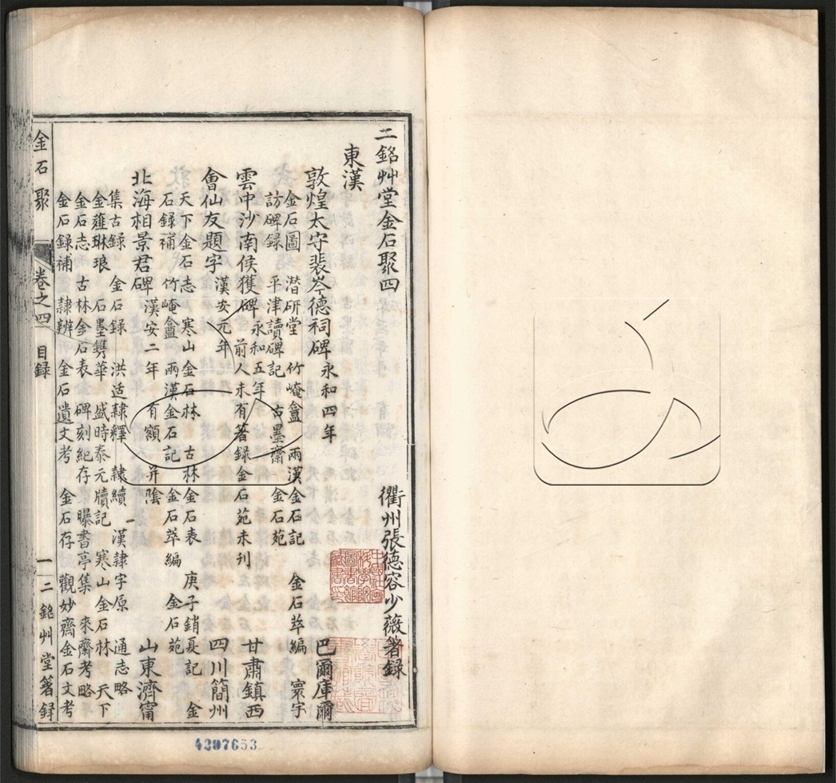 二銘艸堂金石聚四
衢州張德容少薇著錄
東漢
敦煌太守裴岑德祠碑 永和四年 巴爾庫爾
金石圖 潛研堂 竹崦盦 兩漢金石記 金石萃編 寰宇
訪碑錄 平津讀碑記 古墨齋 金石苑
雲中沙南侯獲碑 永和五年 前人未有著錄金石苑未刊 甘肅鎮西
會仙友題字 漢安元年 四川簡州
天下金石志 寒山金石林 古林金石表 庚子銷夏記 金
石錄補 竹崦盦 兩漢金石記 金石萃編 金石苑
北海相景君碑 漢安二年 有額 并陰 山東濟甯
集古錄 金石錄 洪适隸釋 隸續 漢隸字原 通志略
金薤琳琅 石墨鐫華 盛時泰元牘記 寒山金石林 天下
金石志 古林金石表 碑刻紀存 曝書亭集 來齋考略
金石錄補 隸辨 金石遺文考 金石存 觀妙齋金石文考
金石聚 卷之四 目錄 一 二銘艸堂著錄
4297653